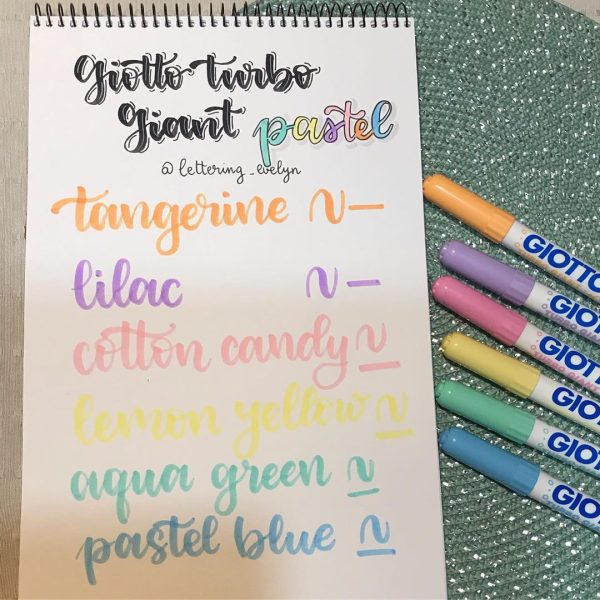 Giotto turbo
Giant pastel
@lettering_evelyn
tangerine
lilac
cotton candy
lemon yellow
aqua green
pastel blue
GIOTTO
GIOTTO
GIOTTO
GIOTTO
GIOTT
GIOTT